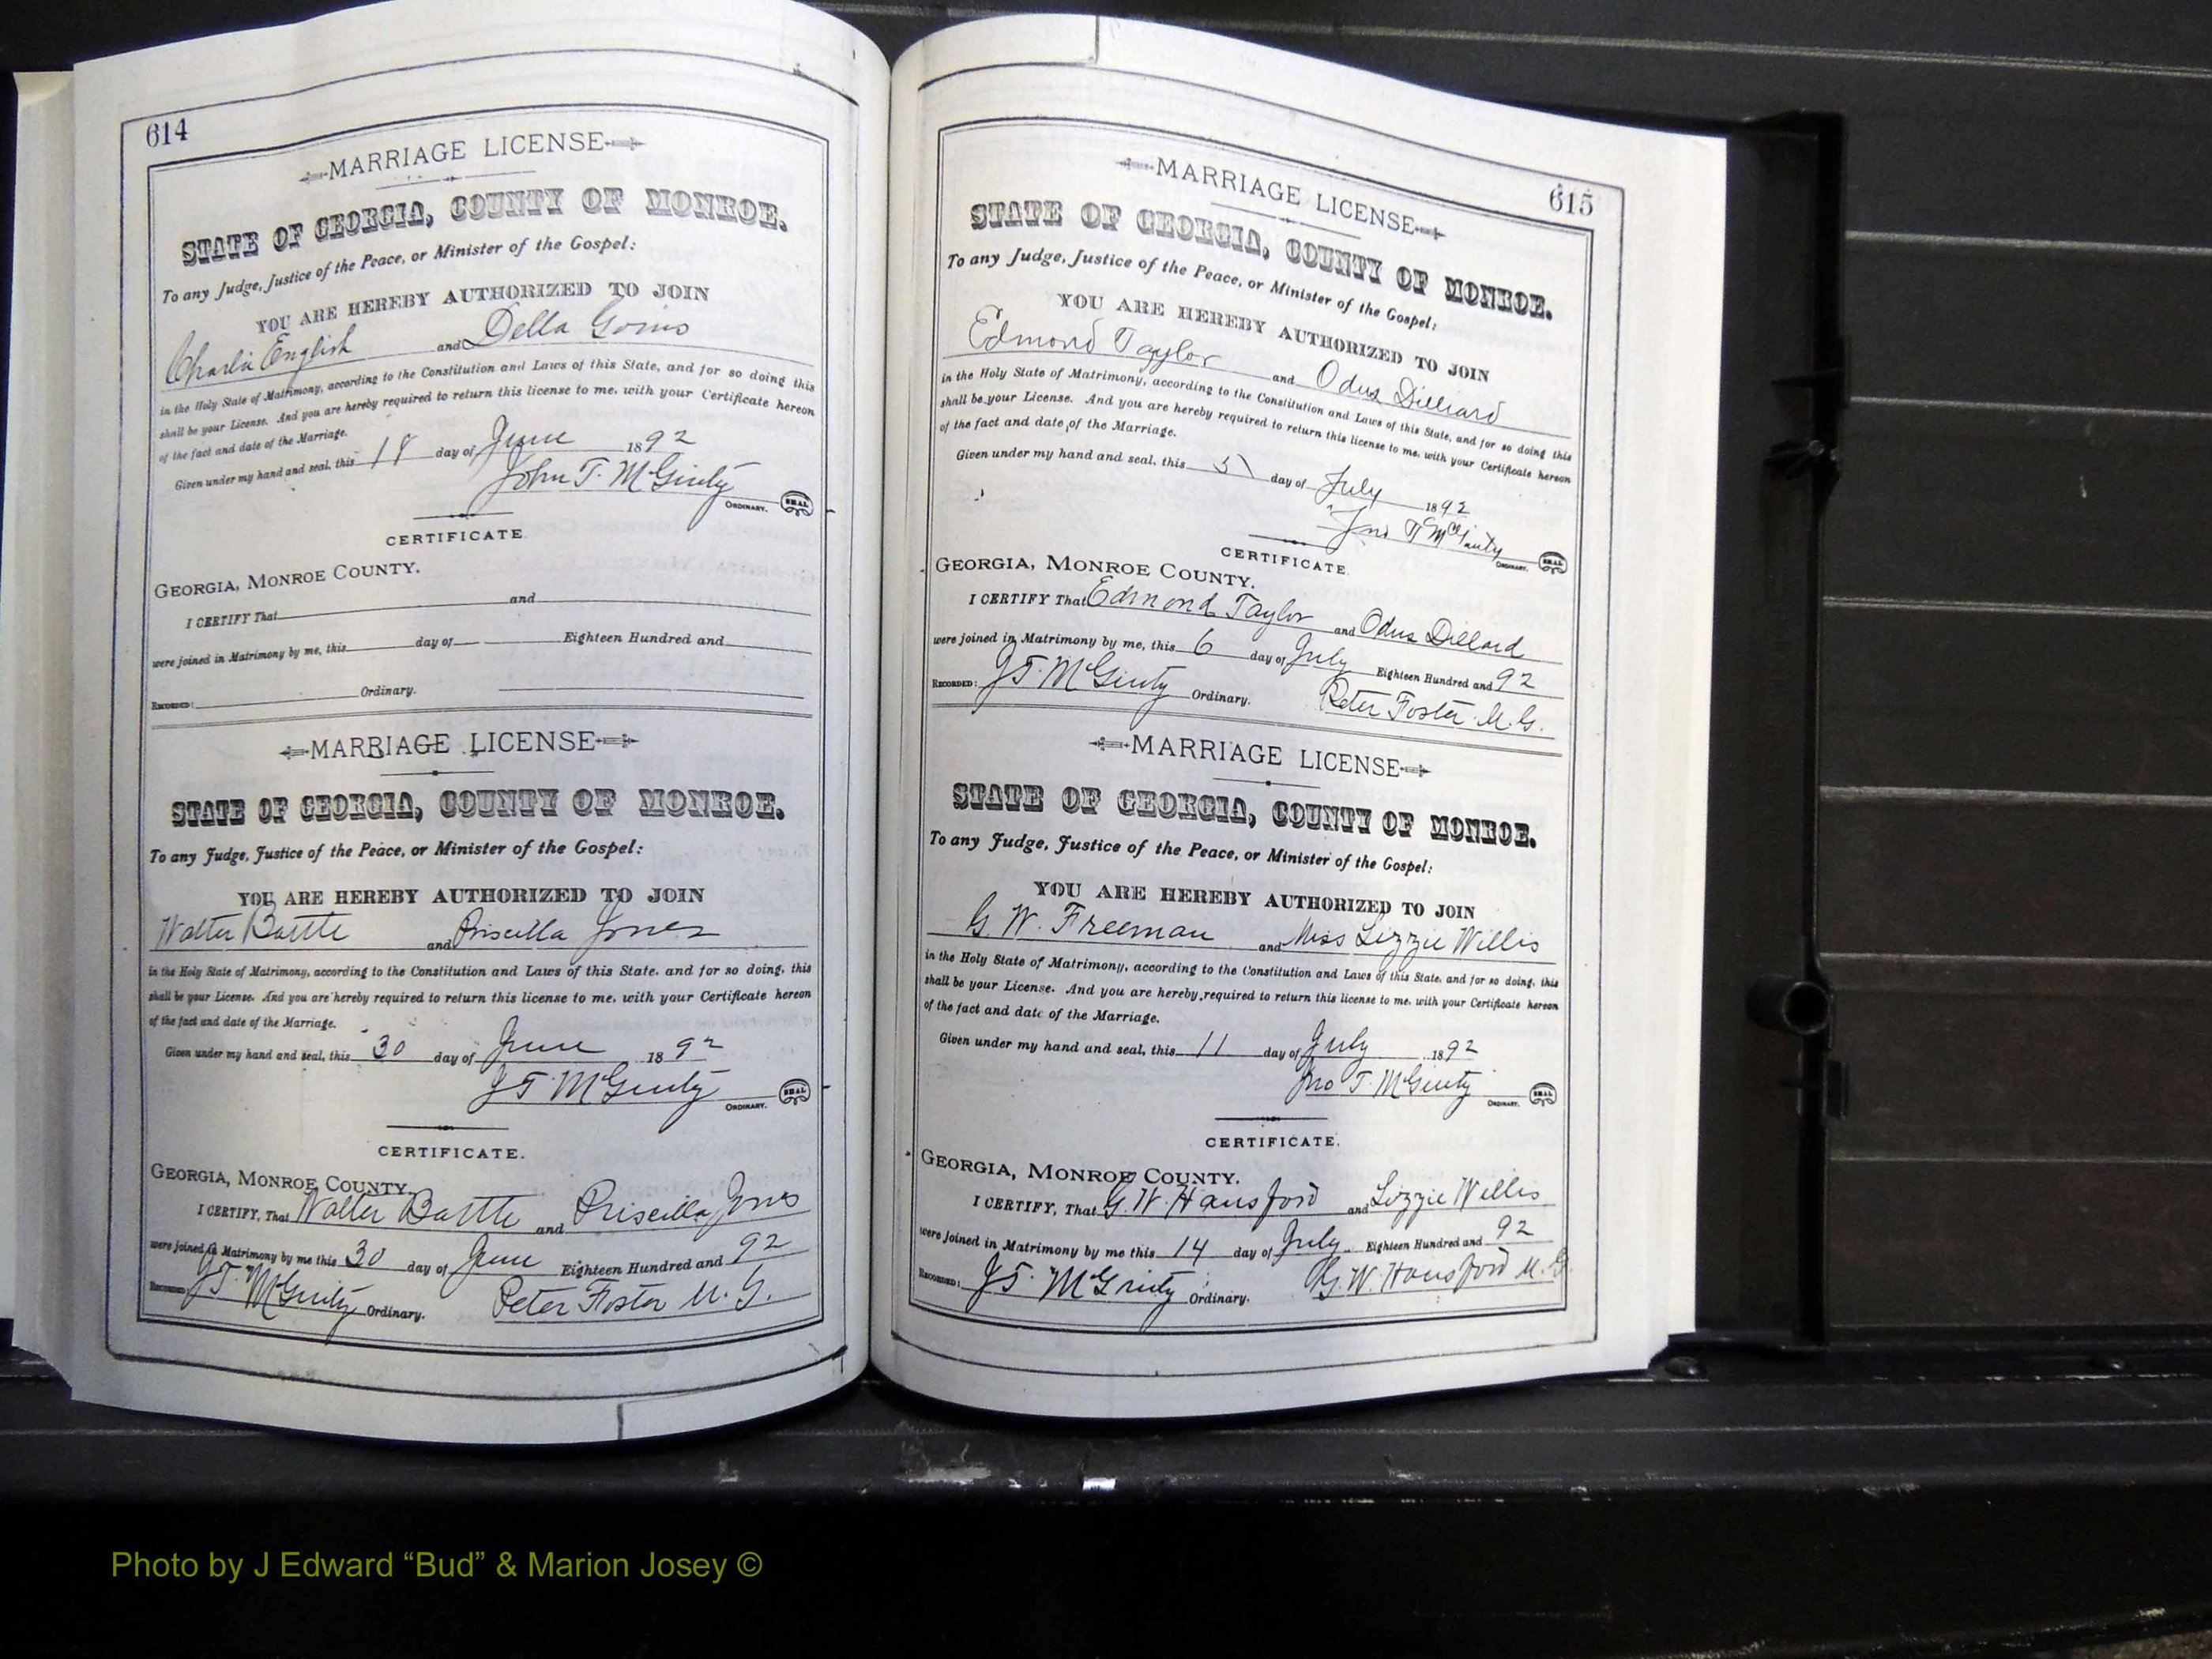 614
MARRIAGE LICENSE
STATE OF GEORGIA, COUNTY OF MONROE.
To any Judge, Justice of the Peace, or Minister of the Gospel:
YOU ARE HEREBY AUTHORIZED TO JOIN
Charlie English and Della Goins
in the Holy State of Matrimony, according to the Constitution and Laws of this State, and for so doing this
shall be your License. And you are hereby required to return this license to me, with your Certificate hereon
of the fact and date of the Marriage.
Given under my hand and seal, this 18 day of June 1892
John T. McGinty
ORDINARY. SEAL
CERTIFICATE.
GEORGIA, MONROE COUNTY.
I CERTIFY That and
were joined in Matrimony by me, this day of Eighteen Hundred and
RECORDED: Ordinary.
MARRIAGE LICENSE
STATE OF GEORGIA, COUNTY OF MONROE.
To any Judge, Justice of the Peace, or Minister of the Gospel:
YOU ARE HEREBY AUTHORIZED TO JOIN
Walter Battle and Priscilla Jones
in the Holy State of Matrimony, according to the Constitution and Laws of this State, and for so doing, this
shall be your License. And you are hereby required to return this license to me, with your Certificate hereon
of the fact and date of the Marriage.
Given under my hand and seal, this 30 day of June 1892
J T McGinty
ORDINARY. SEAL
CERTIFICATE.
GEORGIA, MONROE COUNTY.
I CERTIFY, That Walter Battle and Priscilla Jones
were joined in Matrimony by me this 30 day of June Eighteen Hundred and 92
RECORDED: J T. McGinty Ordinary. Peter Foster M. G.
615
MARRIAGE LICENSE
STATE OF GEORGIA, COUNTY OF MONROE.
To any Judge, Justice of the Peace, or Minister of the Gospel:
YOU ARE HEREBY AUTHORIZED TO JOIN
Edmond Taylor and Odus Dilliard
in the Holy State of Matrimony, according to the Constitution and Laws of this State, and for so doing this
shall be your License. And you are hereby required to return this license to me, with your Certificate hereon
of the fact and date of the Marriage.
Given under my hand and seal, this 5 day of July 1892
Jno T McGinty
ORDINARY. SEAL
CERTIFICATE.
GEORGIA, MONROE COUNTY.
I CERTIFY That Edmond Taylor and Odus Dillard
were joined in Matrimony by me, this 6 day of July Eighteen Hundred and 92
RECORDED: J T. McGinty Ordinary. Peter Foster M. G.
MARRIAGE LICENSE
STATE OF GEORGIA, COUNTY OF MONROE.
To any Judge, Justice of the Peace, or Minister of the Gospel:
YOU ARE HEREBY AUTHORIZED TO JOIN
G. W. Freeman and Miss Lizzie Willis
in the Holy State of Matrimony, according to the Constitution and Laws of this State, and for so doing, this
shall be your License. And you are hereby required to return this license to me, with your Certificate hereon
of the fact and date of the Marriage.
Given under my hand and seal, this 11 day of July 1892
Jno T. McGinty
ORDINARY. SEAL
CERTIFICATE.
GEORGIA, MONROE COUNTY.
I CERTIFY, That G. W. Hansford and Lizzie Willis
were joined in Matrimony by me this 14 day of July Eighteen Hundred and 92
RECORDED: J T. McGinty Ordinary. G. W. Hansford M. G.
Photo by J Edward “Bud” & Marion Josey ©